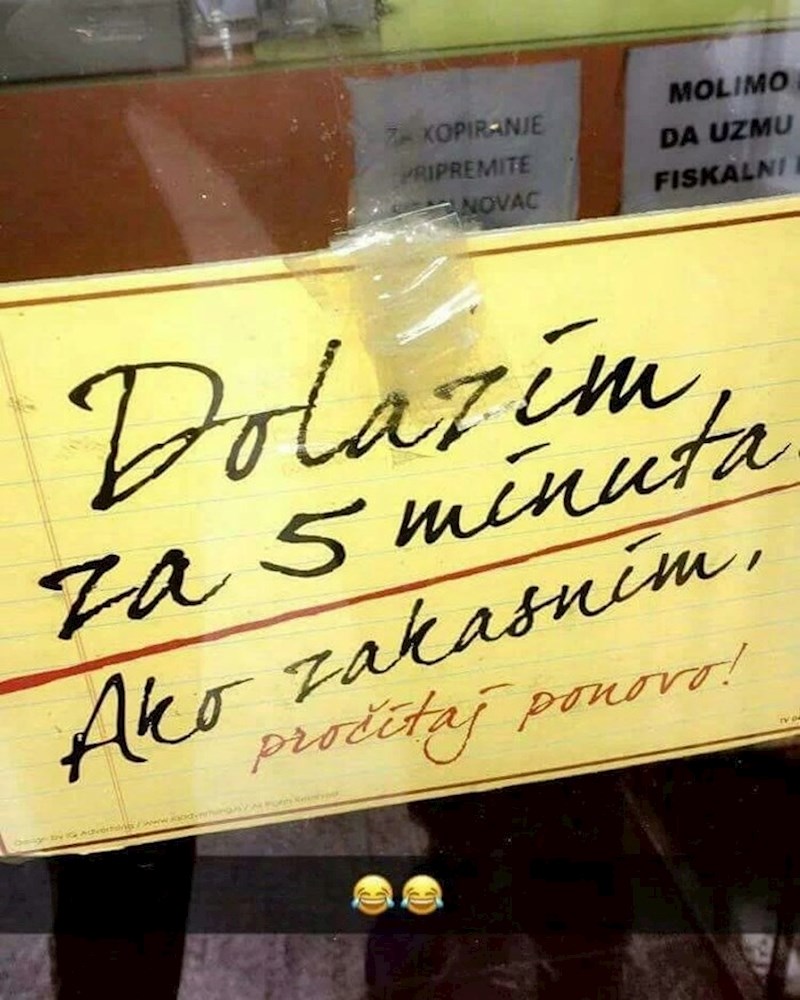 ZA KOPIRANJE
PRIPREMITE
MOLIMO
DA UZMU
FISKALNI
Dolazim
za 5 minuta.
Ako zakasnim,
pročitaj ponovo!
Design by IQ Advertising / All Rights Reserved
😂😂